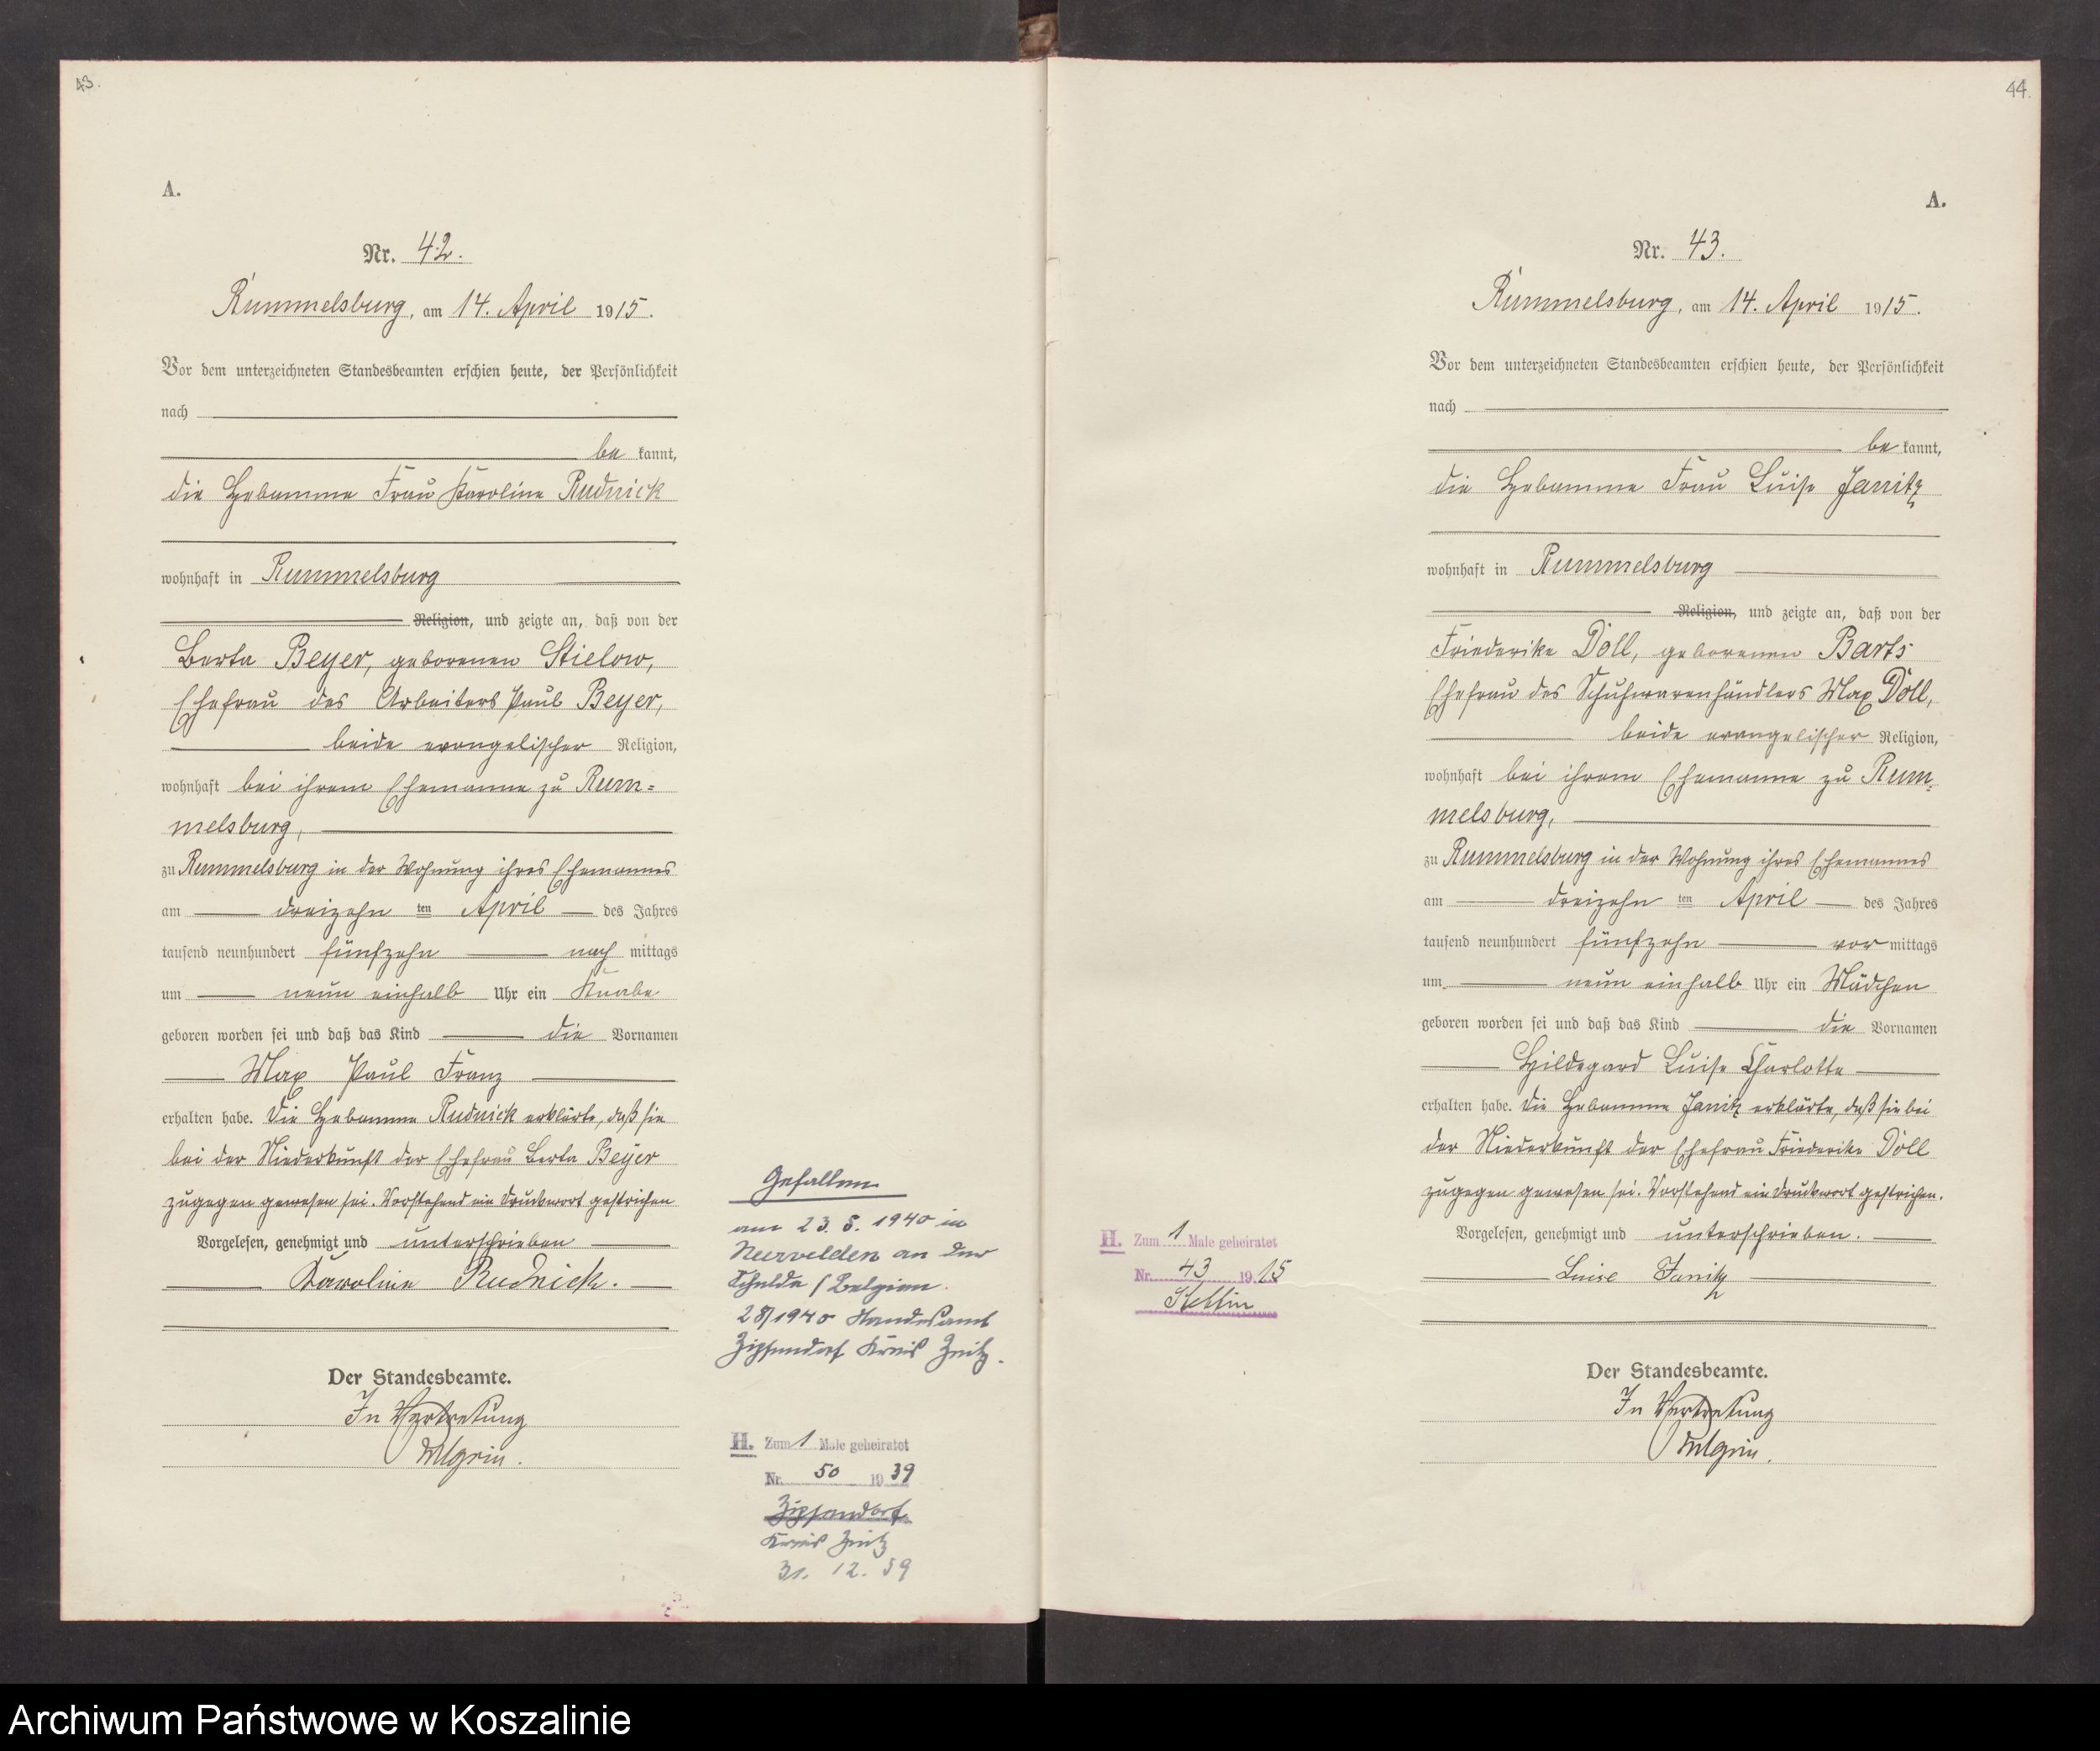 43.
A.
Nr. 42.
Rummelsburg, am 14. April 1915.
Vor dem unterzeichneten Standesbeamten erschien heute, der Persönlichkeit
nach
be kannt,
die Hebamme Frau Karoline Rudnick
wohnhaft in Rummelsburg
Religion, und zeigte an, daß von der
Berta Beyer, geborenen Stielow,
Ehefrau des Arbeiters Paul Beyer,
beide evangelischer Religion,
wohnhaft bei ihrem Ehemanne zu Rum=
melsburg,
zu Rummelsburg in der Wohnung ihres Ehemannes
am dreizehn ten April des Jahres
tausend neunhundert fünfzehn nach mittags
um neun einhalb Uhr ein Knabe
geboren worden sei und daß das Kind die Vornamen
Max Paul Franz
erhalten habe. Die Hebamme Rudnick erklärte, daß sie
bei der Niederkunft der Ehefrau Berta Beyer
zugegen gewesen sei. Vorstehend ein Druckwort gestrichen
Vorgelesen, genehmigt und unterschrieben
Karoline Rudnick.
Der Standesbeamte.
In Vertretung
Gefallen
am 23. 5. 1940 in
an der
Schelde / Belgien.
28/1940 Standesamt
Zipsendorf Kreis Zeitz.
H. Zum 1 Male geheiratet
Nr. 50 1939
Zipsendorf
Kreis Zeitz
31. 12. 39
44.
A.
Nr. 43.
Rummelsburg, am 14. April 1915.
Vor dem unterzeichneten Standesbeamten erschien heute, der Persönlichkeit
nach
be kannt,
die Hebamme Frau Luise Janitz
wohnhaft in Rummelsburg
Religion, und zeigte an, daß von der
Friederike Döll, geborenen Barts
Ehefrau des Schuhwarenhändlers Max Döll,
beide evangelischer Religion,
wohnhaft bei ihrem Ehemanne zu Rum=
melsburg,
zu Rummelsburg in der Wohnung ihres Ehemannes
am dreizehn ten April des Jahres
tausend neunhundert fünfzehn vor mittags
um neun einhalb Uhr ein Mädchen
geboren worden sei und daß das Kind die Vornamen
Hildegard Luise Charlotte
erhalten habe. Die Hebamme Janitz erklärte, daß sie bei
der Niederkunft der Ehefrau Friederike Döll
zugegen gewesen sei. Vorstehend ein Druckwort gestrichen.
Vorgelesen, genehmigt und unterschrieben.
Luise Janitz
Der Standesbeamte.
In Vertretung
H. Zum 1 Male geheiratet
Nr. 43 1915
Stettin
Archiwum Państwowe w Koszalinie